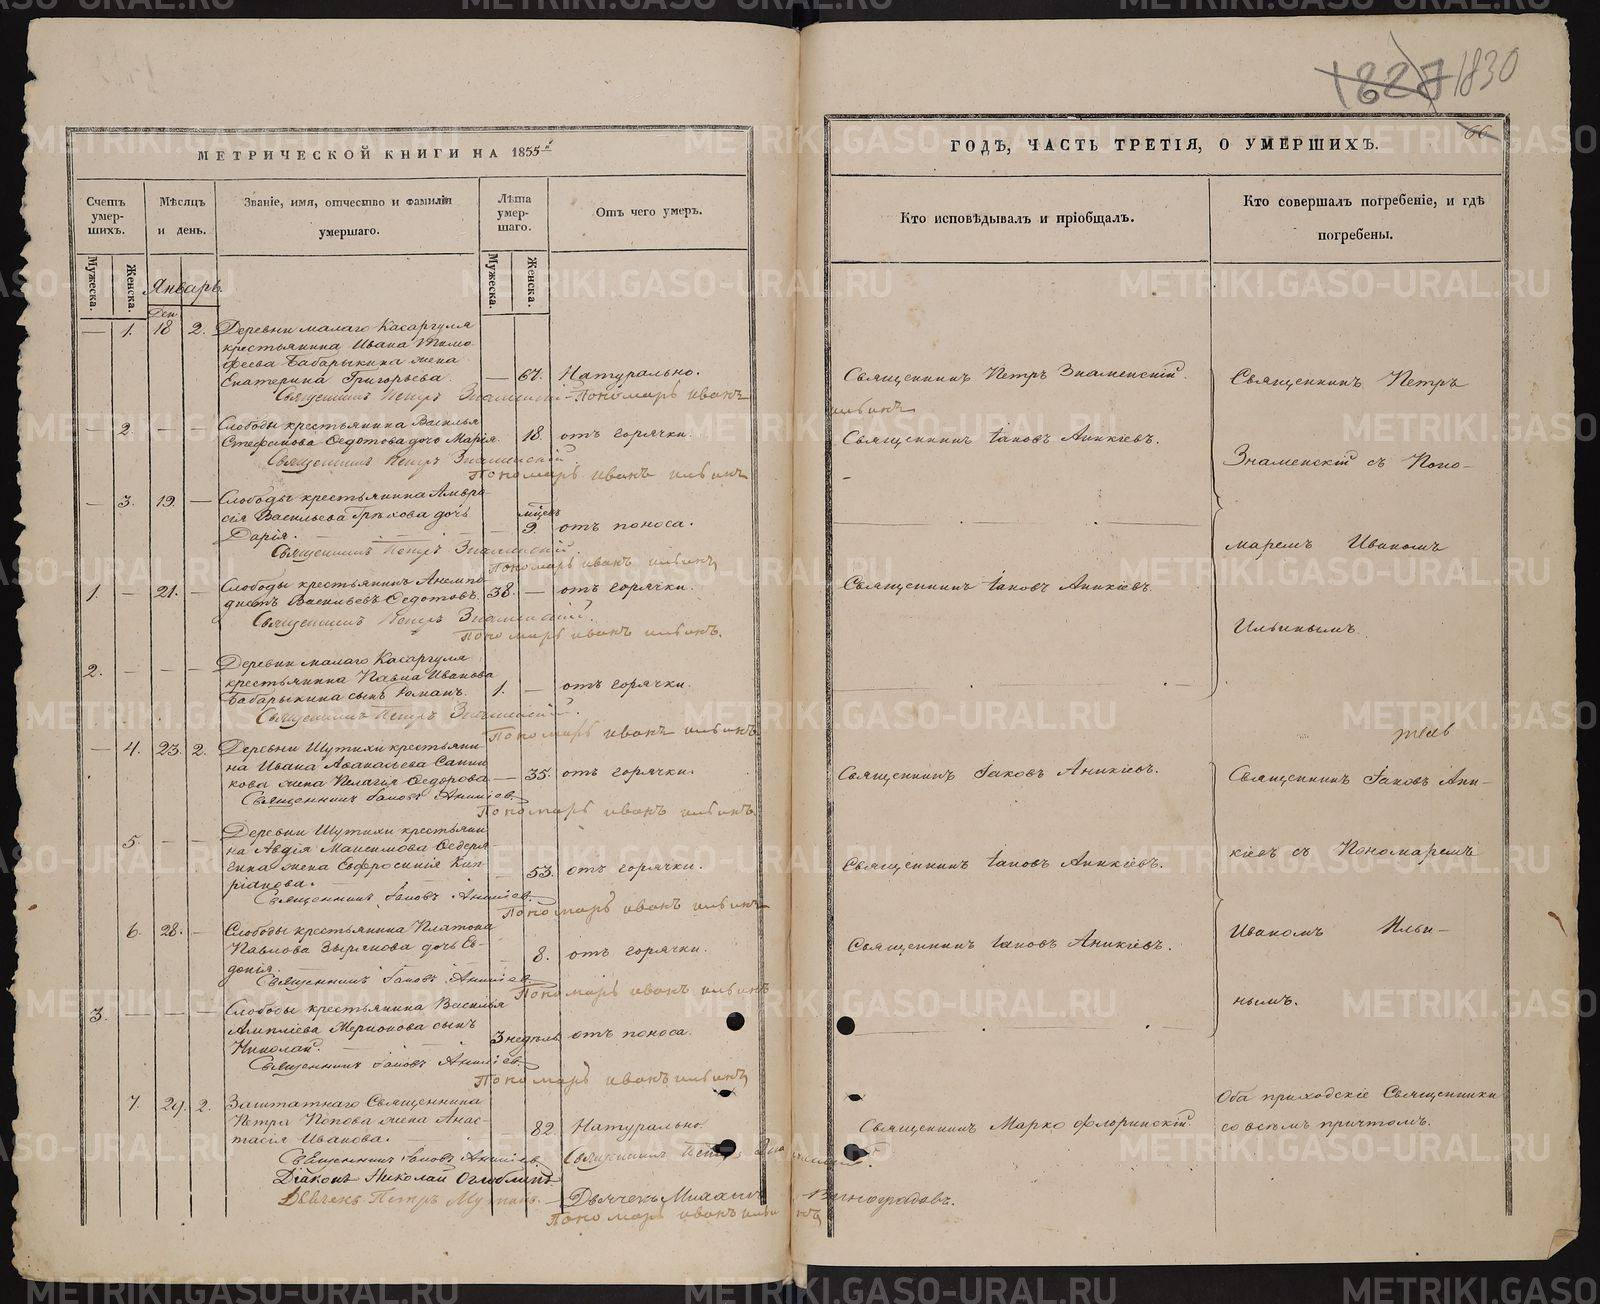 1827 1830
66
МЕТРИЧЕСКОЙ КНИГИ НА 1855й
ГОДѢ, ЧАСТЬ ТРЕТІЯ, О УМЕРШИХЪ.
Счетъ умер-шихъ.
Мѣсяцъ и день.
Званіе, имя, отчество и фамилія умершаго.
Лѣта умер-шаго.
Отъ чего умеръ.
Кто исповѣдывалъ и пріобщалъ.
Кто совершалъ погребеніе, и гдѣ погребены.
Мужеска.
Женска.
Мужеска.
Женска.
Январь
Ден.
— 1. 18 2. Деревни малаго Касаргуля
крестьянина Ивана Тимо
феева Бабарыкина жена
Екатерина Григорьева. — 67. Натурально. Священникъ Петръ Знаменскій. Священникъ Петръ
Священникъ Петръ Знаменскій Пономарь иванъ ильинъ
— 2. — — Слободы крестьянина Василья
Стефанова Федотова дочь Марія. 18. отъ горячки. Священникъ Іаковъ Аникіевъ. Знаменскій съ Поно-
Священникъ Петръ Знаменскій
Пономарь иванъ ильинъ
— 3. 19. — Слободы крестьянина Амвро
сія Васильева Грѣхова дочь
Дарія. — 9. отъ поноса. маремъ Иваномъ
Священникъ Петръ Знаменскій.
Пономарь иванъ ильинъ
1. — 21. — Слободы крестьянинъ Анемпо
дистъ Васильевъ Федотовъ. 38. — отъ горячки. Священникъ Іаковъ Аникіевъ. Ильинымъ.
Священникъ Петръ Знаменскій.
Пономарь иванъ ильинъ.
2. — — — Деревни малаго Касаргуля
крестьянина Павла Иванова
Бабарыкина сынъ Романъ. 1. — отъ горячки.
Священникъ Петръ Знаменскій.
Пономарь иванъ ильинъ
— 4. 23. 2. Деревни Шутихи крестьяни
на Ивана Аванасьева Санни
кова жена Пелагія Федорова — 35. отъ горячки. Священникъ Іаковъ Аникіевъ. Священникъ Іаковъ Ани-
Священникъ Іаковъ Аникіев.
Пономарь иванъ ильинъ
5. — — Деревни Шутихи крестьяни
на Авдія Максимова Федеря
гина жена Евфросинія Кип-
ріанова. — 53. отъ горячки. Священникъ Іаковъ Аникіевъ. кіевъ съ Пономаремъ
Священникъ Іаковъ Аникіев.
Пономарь иванъ ильинъ
6. 28. — Слободы крестьянина Платона
Павлова Зырянова дочь Ев-
докія. — 8. отъ горячки. Священникъ Іаковъ Аникіевъ. Иваномъ Ильи-
Священникъ Іаковъ Аникіев.
Пономарь иванъ ильинъ
3. — — — Слободы крестьянина Василья
Николай. 3 недѣль отъ поноса. нымъ.
Священникъ Іаковъ Аникіев.
Пономарь иванъ ильинъ
7. 29. 2. Заштатнаго Священника
Петра Попова жена Анас-
тасія Иванова. 82. Натурально. Священникъ Марко Флоринскій. Оба приходскіе Священники
со всѣмъ причтомъ.
Священникъ Іаковъ Аникіев. Священникъ Петръ Знаменскій.
Діаконъ Николай Оглоблинъ
Дьячекъ Петръ — Дьячекъ Михаилъ Виноградовъ.
Пономарь иванъ ильинъ